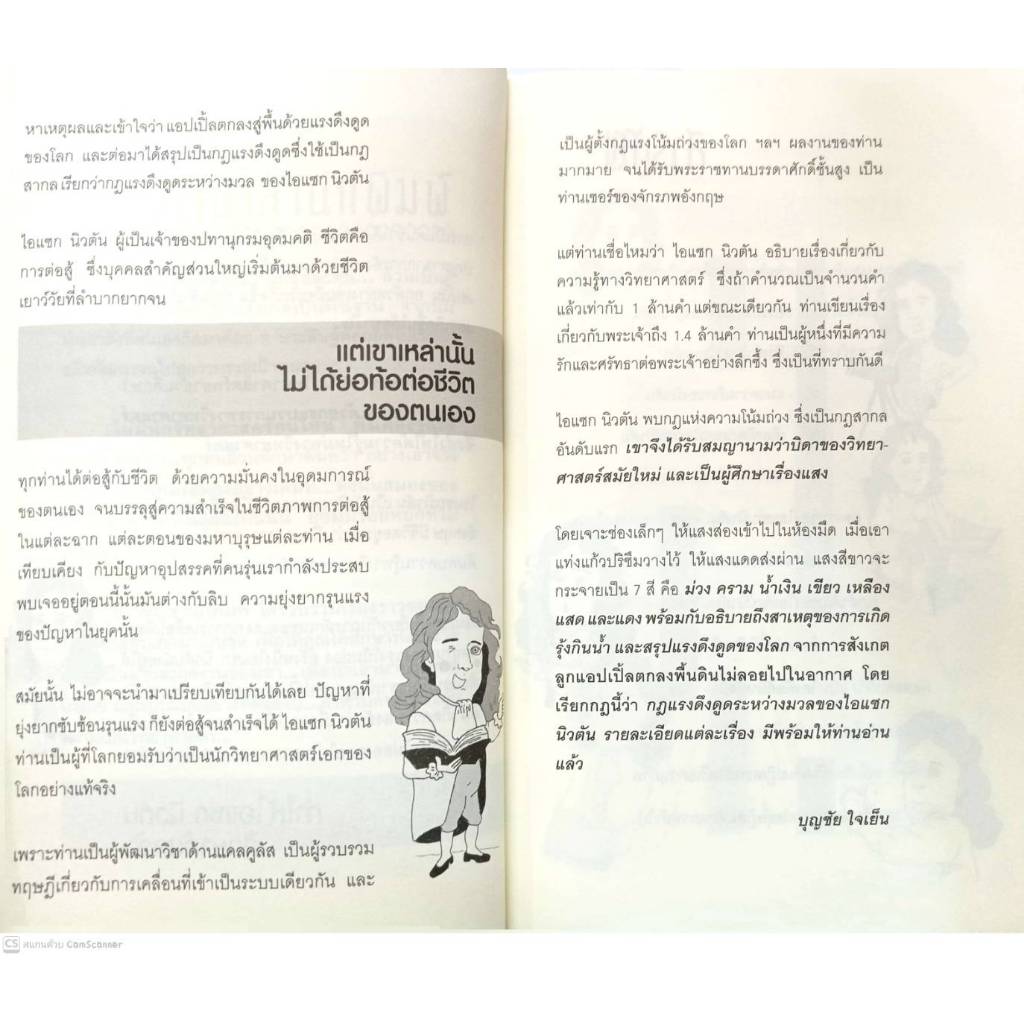 หาเหตุผลและเข้าใจว่า แอปเปิ้ลตกลงสู่พื้นด้วยแรงดึงดูด
ของโลก และต่อมาได้สรุปเป็นกฎแรงดึงดูดซึ่งใช้เป็นกฎ
สากล เรียกว่ากฎแรงดึงดูดระหว่างมวล ของไอแซก นิวตัน
ไอแซก นิวตัน ผู้เป็นเจ้าของปทานุกรมอุดมคติ ชีวิตคือ
การต่อสู้ ซึ่งบุคคลสำคัญส่วนใหญ่เริ่มต้นมาด้วยชีวิต
เยาว์วัยที่ลำบากยากจน
แต่เขาเหล่านั้น
ไม่ได้ย่อท้อต่อชีวิต
ของตนเอง
ทุกท่านได้ต่อสู้กับชีวิต ด้วยความมั่นคงในอุดมการณ์
ของตนเอง จนบรรลุสู่ความสำเร็จในชีวิตภาพการต่อสู้
ในแต่ละฉาก แต่ละตอนของมหาบุรุษแต่ละท่าน เมื่อ
เทียบเคียง กับปัญหาอุปสรรคที่คนรุ่นเรากำลังประสบ
พบเจออยู่ตอนนี้นั้นมันต่างกันลิบ ความยุ่งยากรุนแรง
ของปัญหาในยุคนั้น
สมัยนั้น ไม่อาจจะนำมาเปรียบเทียบกันได้เลย ปัญหาที่
ยุ่งยากซับซ้อนรุนแรง ก็ยังต่อสู้จนสำเร็จได้ ไอแซก นิวตัน
ท่านเป็นผู้ที่โลกยอมรับว่าเป็นนักวิทยาศาสตร์เอกของ
โลกอย่างแท้จริง
เพราะท่านเป็นผู้พัฒนาวิชาด้านแคลคูลัส เป็นผู้รวบรวม
ทฤษฎีเกี่ยวกับการเคลื่อนที่เข้าเป็นระบบเดียวกัน และ
เป็นผู้ตั้งกฎแรงโน้มถ่วงของโลก ฯลฯ ผลงานของท่าน
มากมาย จนได้รับพระราชทานบรรดาศักดิ์ชั้นสูง เป็น
ท่านเซอร์ของจักรภพอังกฤษ
แต่ท่านเชื่อไหมว่า ไอแซก นิวตัน อธิบายเรื่องเกี่ยวกับ
ความรู้ทางวิทยาศาสตร์ ซึ่งถ้าคำนวณเป็นจำนวนคำ
แล้วเท่ากับ 1 ล้านคำ แต่ขณะเดียวกัน ท่านเขียนเรื่อง
เกี่ยวกับพระเจ้าถึง 1.4 ล้านคำ ท่านเป็นผู้หนึ่งที่มีความ
รักและศรัทธาต่อพระเจ้าอย่างลึกซึ้ง ซึ่งเป็นที่ทราบกันดี
ไอแซก นิวตัน พบกฎแห่งความโน้มถ่วง ซึ่งเป็นกฎสากล
อันดับแรก เขาจึงได้รับสมญานามว่าบิดาของวิทยา-
ศาสตร์สมัยใหม่ และเป็นผู้ศึกษาเรื่องแสง
โดยเจาะช่องเล็กๆ ให้แสงส่องเข้าไปในห้องมืด เมื่อเอา
แท่งแก้วปริซึมวางไว้ ให้แสงแดดส่งผ่าน แสงสีขาวจะ
กระจายเป็น 7 สี คือ ม่วง คราม น้ำเงิน เขียว เหลือง
แสด และแดง พร้อมกับอธิบายถึงสาเหตุของการเกิด
รุ้งกินน้ำ และสรุปแรงดึงดูดของโลก จากการสังเกต
ลูกแอปเปิ้ลตกลงพื้นดินไม่ลอยไปในอากาศ โดย
เรียกกฎนี้ว่า กฎแรงดึงดูดระหว่างมวลของไอแซก
นิวตัน รายละเอียดแต่ละเรื่อง มีพร้อมให้ท่านอ่าน
แล้ว
บุญชัย ใจเย็น
CS สแกนด้วย CamScanner